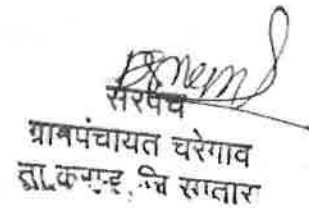 सरपंच
ग्रामपंचायत चरेगाव
ता. कराड, जि सातार